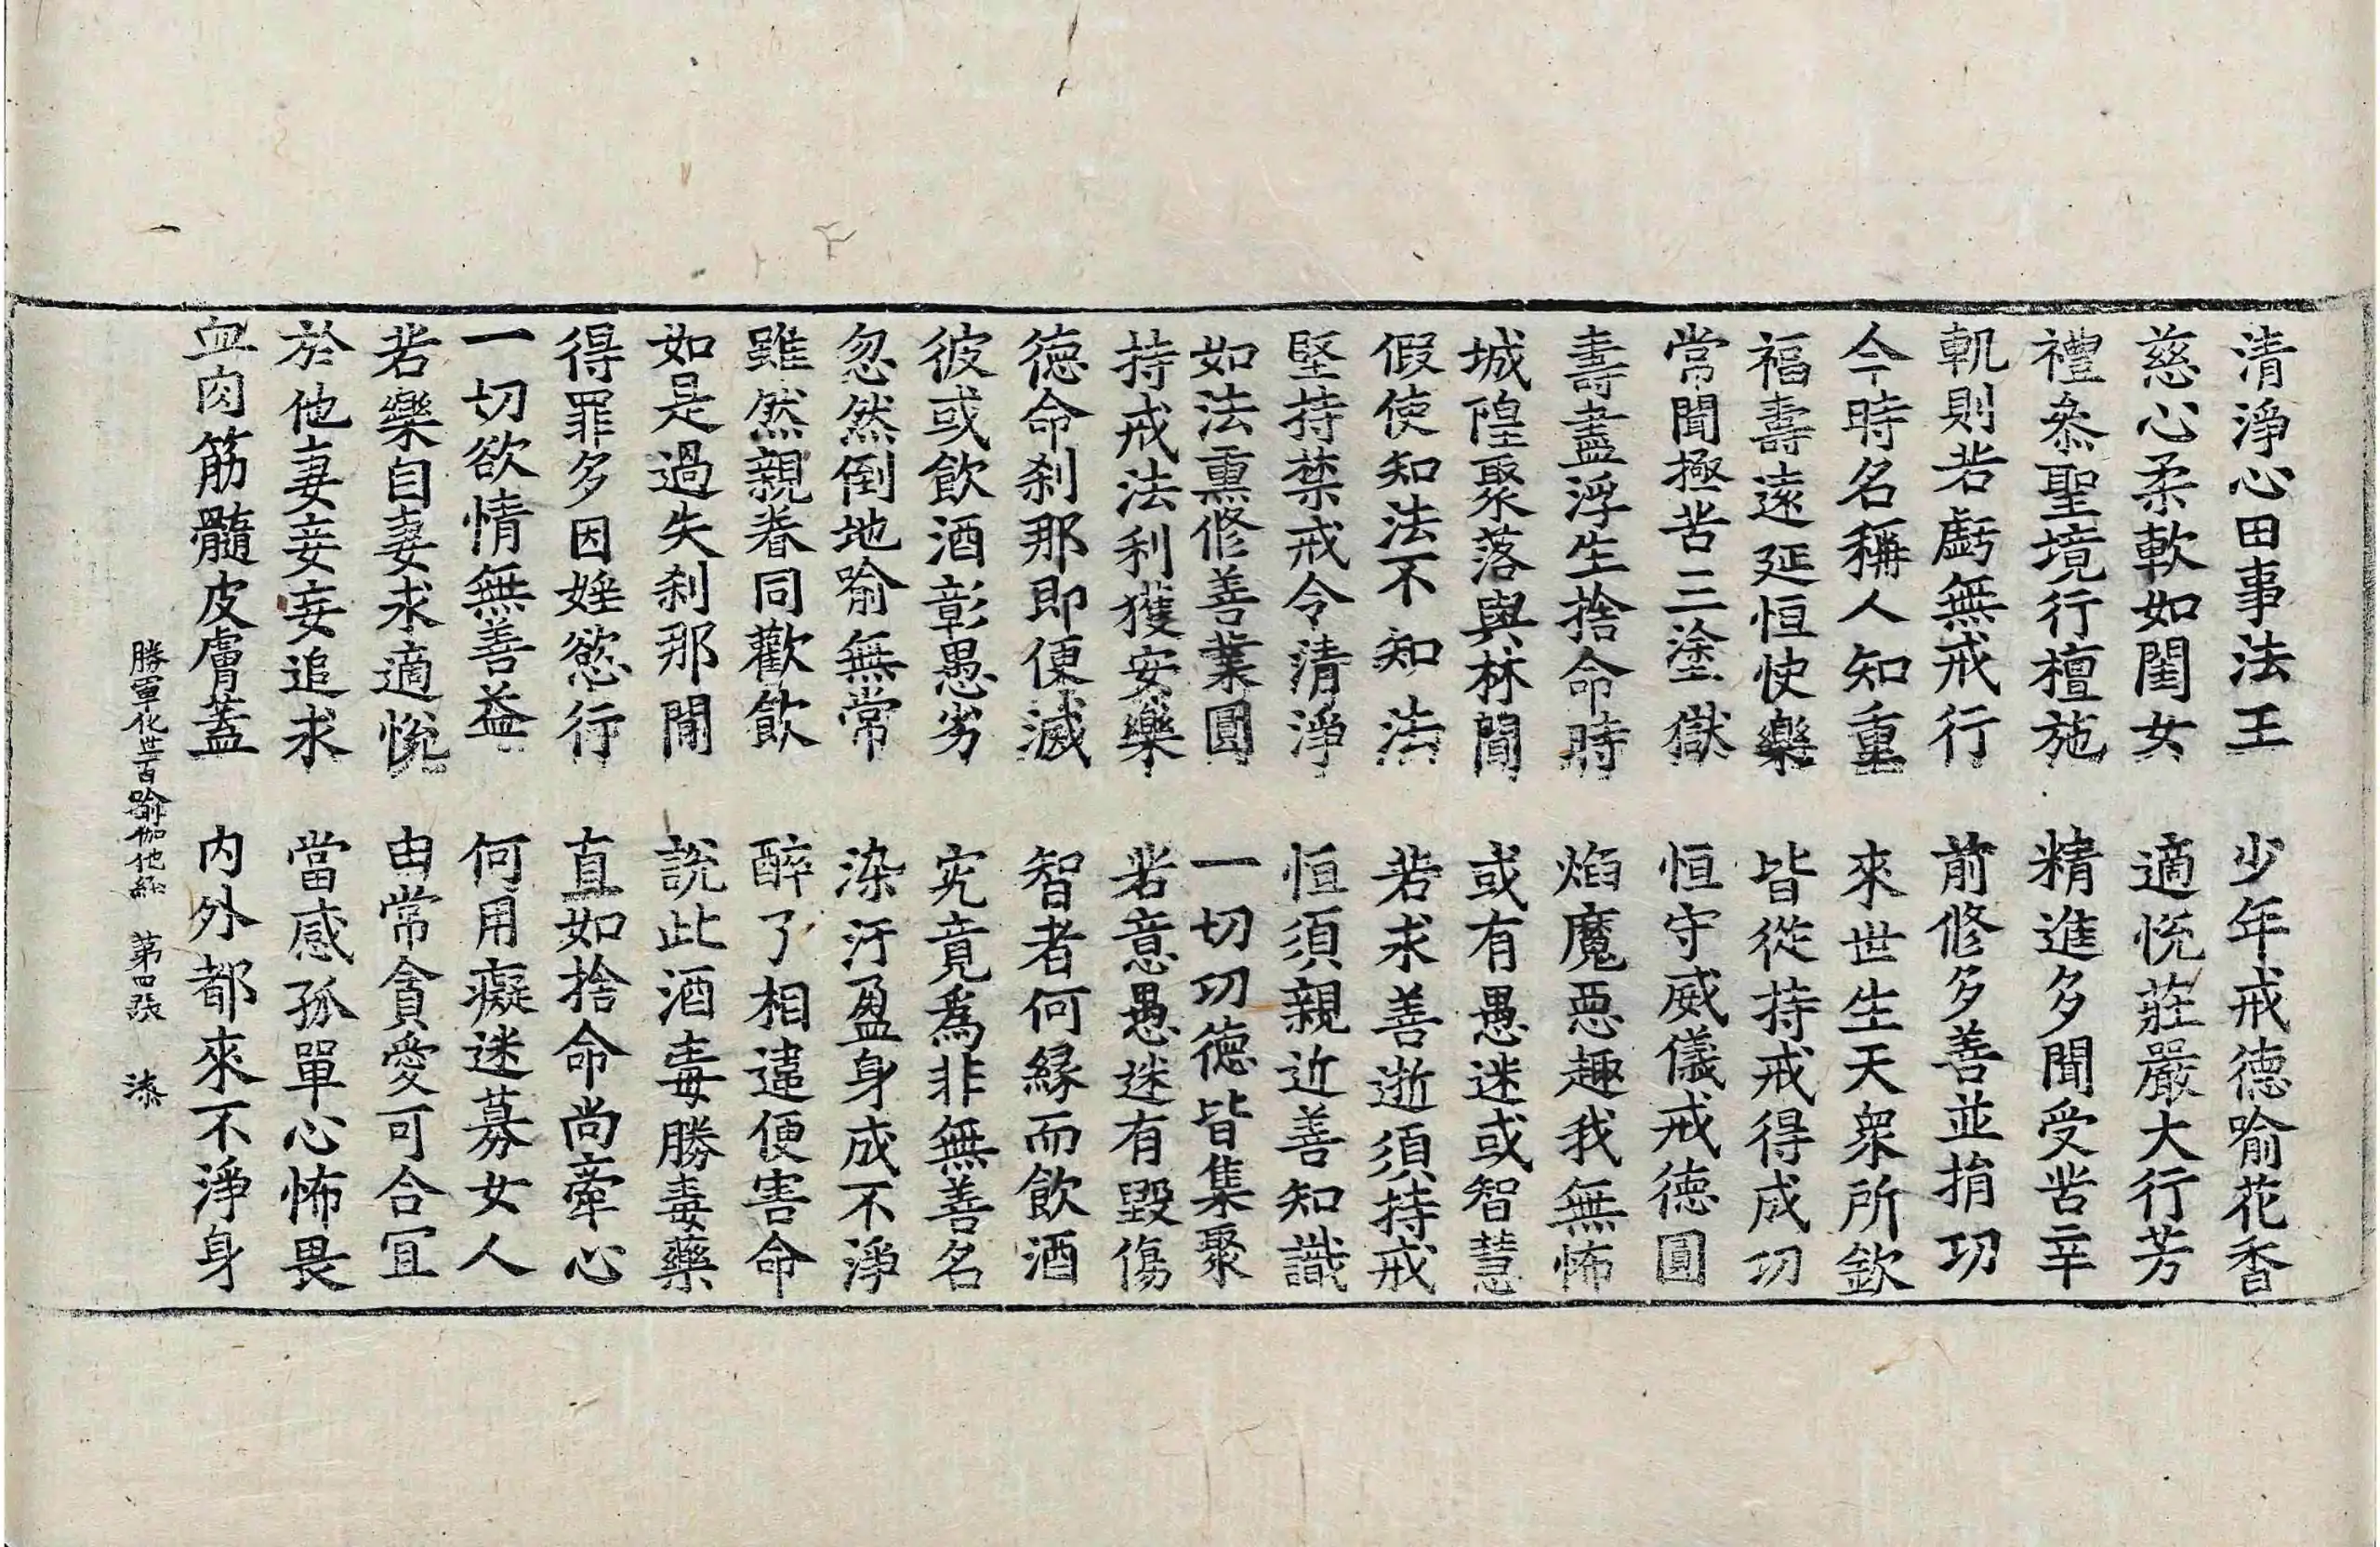 清淨心田事法王　少年戒德喻花香
慈心柔軟如閨女　適悅莊嚴大行芳
禮叅聖境行檀施　精進多聞受苦辛
軌則若虧無戒行　前修多善並捐功
今時名稱人知重　來世生天衆所欽
福壽遠延恒快樂　皆從持戒得成功
常聞極苦三塗獄　恒守威儀戒德圓
壽盡浮生捨命時　焰魔惡趣我無怖
城隍聚落與林間　或有愚迷或智慧
假使知法不知法　若求善逝須持戒
堅持禁戒令清淨　恒須親近善知識
如法熏修善業圓　一切功德皆集聚
持戒法利獲安樂　若意愚迷有毀傷
德命刹那即便滅　智者何緣而飲酒
彼或飲酒彰愚劣　究竟爲非無善名
忽然倒地喻無常　染汙盈身成不淨
雖然親眷同歡飲　醉了相違便害命
如是過失刹那間　說此酒毒勝毒藥
得罪多因婬慾行　直如捨命尚牽心
一切欲情無善益　何用癡迷募女人
若樂自妻求適悅　由常貪愛可合宜
於他妻妾妄追求　當感孤單心怖畏
血肉筋髓皮膚蓋　內外都來不淨身
勝軍化世百喻伽他經　第四張　漆